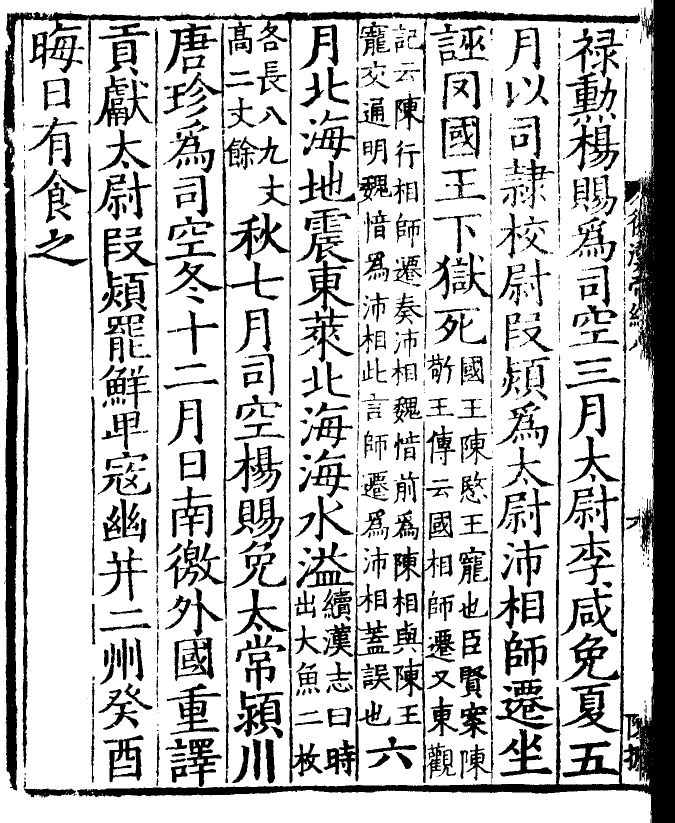 禄勳楊賜爲司空三月太尉李咸免夏五
月以司隸校尉段熲爲太尉沛相師遷坐
誣罔國王下獄死
國王陳愍王寵也臣賢案陳
敬王傳云國相師遷又東觀
記云陳行相師遷奏沛相魏愔前爲陳相與陳王
寵交通明魏愔爲沛相此言師遷爲沛相蓋誤也
六
月北海地震東萊北海海水溢
續漢志曰時
出大魚二枚
各長八九丈
高二丈餘
秋七月司空楊賜免太常潁川
唐珍爲司空冬十二月日南徼外國重譯
貢獻太尉段熲罷鮮卑寇幽并二州癸酉
晦日有食之